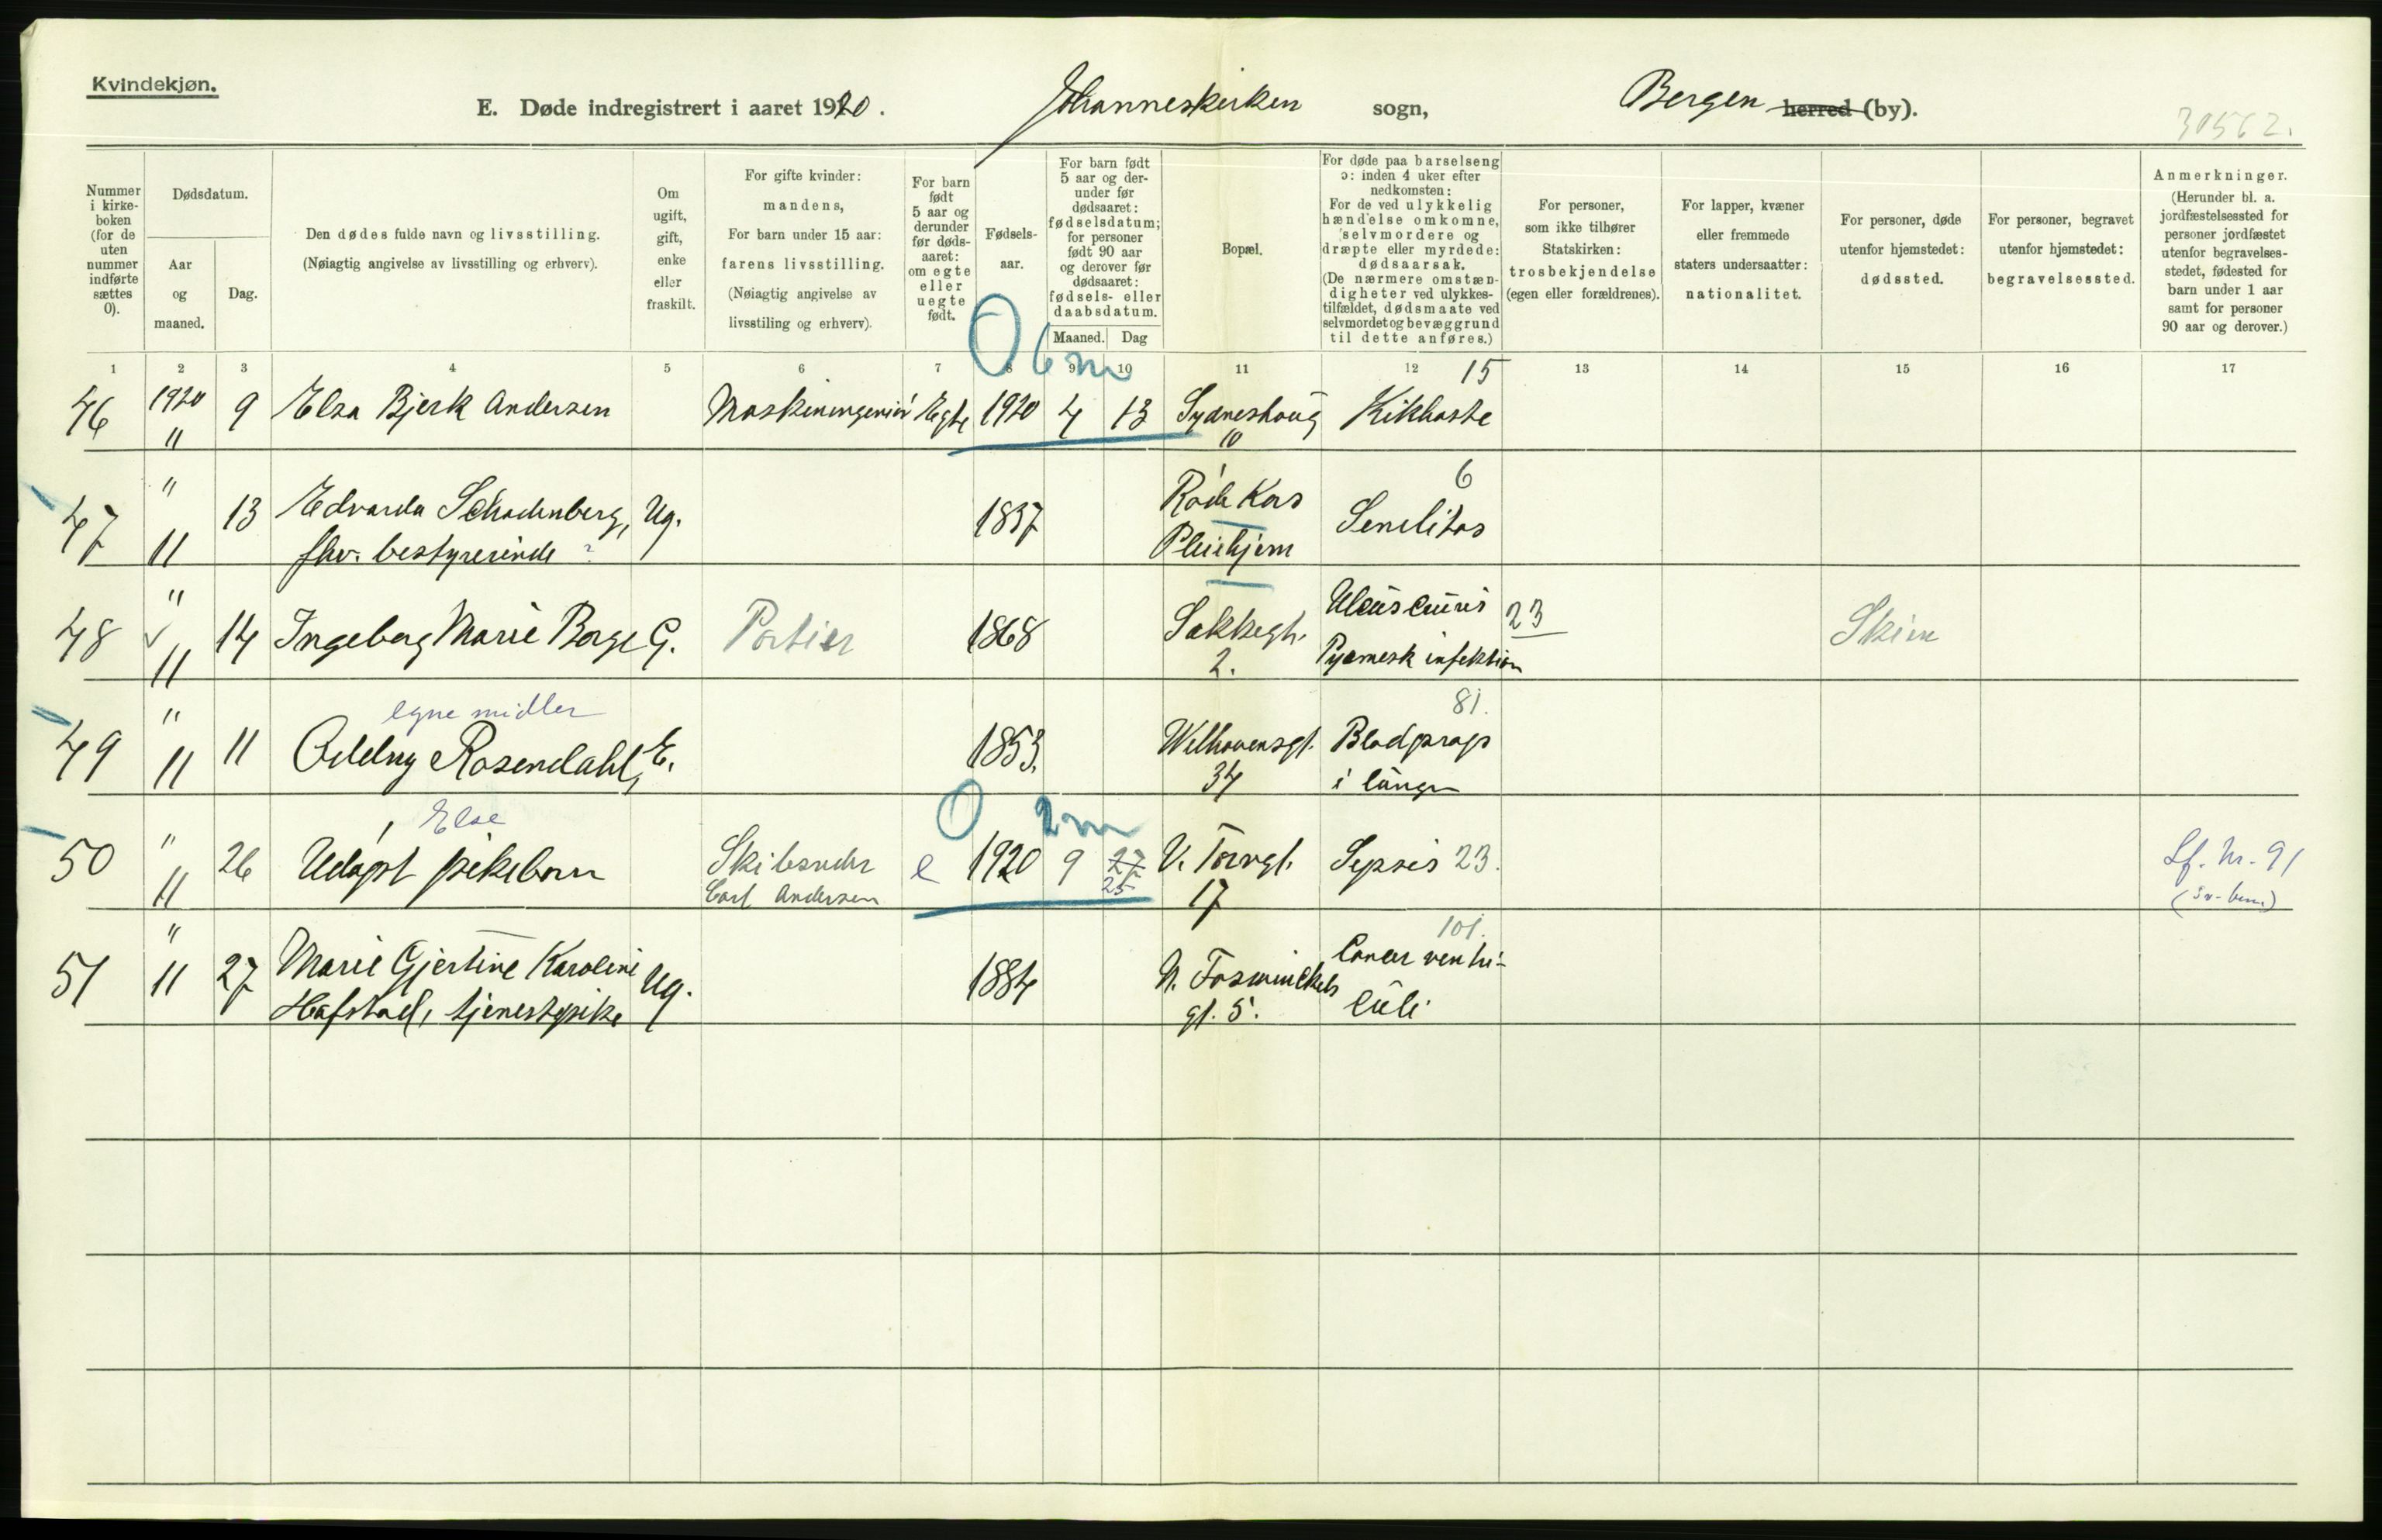 Kvindekjøn.
E. Døde indregistrert i aaret 1920. Johanneskirken sogn, Bergen herred (by).
30562.
Nummer i kirke-boken (for de uten nummer indførte sættes 0).
Dødsdatum.
Aar og maaned.
Dag.
Den dødes fulde navn og livsstilling.
(Nøiagtig angivelse av livsstilling og erhverv).
Om ugift, gift, enke eller fraskilt.
For gifte kvinder: mandens,
For barn under 15 aar: farens livsstilling.
(Nøiagtig angivelse av livsstiling og erhverv).
For barn født 5 aar og derunder før døds-aaret: om egte eller uegte født.
Fødsels-aar.
For barn født 5 aar og der-under før dødsaaret: fødselsdatum; for personer født 90 aar og derover før dødsaaret: fødsels- eller daabsdatum.
Maaned. Dag
Bopæl.
For døde paa barselseng ɔ: inden 4 uker efter nedkomsten:
For de ved ulykkelig hændelse omkomne, selvmordere og dræpte eller myrdede: dødsaarsak.
(De nærmere omstæn-digheter ved ulykkes-tilfældet, dødsmaate ved selvmordet og bevæggrund til dette anføres.)
For personer, som ikke tilhører Statskirken: trosbekjendelse (egen eller forældrenes).
For lapper, kvæner eller fremmede staters undersaatter: nationalitet.
For personer, døde utenfor hjemstedet: dødssted.
For personer, begravet utenfor hjemstedet: begravelsessted.
Anmerkninger.
(Herunder bl. a. jordfæstelsessted for personer jordfæstet utenfor begravelses-stedet, fødested for barn under 1 aar samt for personer 90 aar og derover.)
1 2 3 4 5 6 7 8 9 10 11 12 13 14 15 16 17
0 6 m 15
46 1920 11 9 Elsa Bjerk Andersen Maskiningeniør Egte 1920 4 13 Sydneshaug 10 Kikhoste
6
47 " 11 13 Edvarda Schadenberg, Ug. 1837 Røde Kors Senilitas
fhv. bestyrerinde ? Pleiehjem
48 " 11 14 Ingeborg Marie Borge G. Portier 1868 Sakkegt. 2. Ulcus cruris 23 Skien
Pyæmisk infektion
egne midler 81.
49 " 11 11 Oddny Rosendahl, E. 1853. Welhavensgt. 34 Blodprop
i lunge
Else 0 2 m
50 " 11 26 Udøpt pikebarn Skibsreder e 1920 9 27 V. Torvgt. 17 Sepsis 23. Lf. Nr. 91
Carl Andersen 25
101.
51 " 11 27 Marie Gjertine Karoline Ug. 1884 N. Foswinckels Cancer ventri-
Hafstad, tjenestepike gt. 5. culi